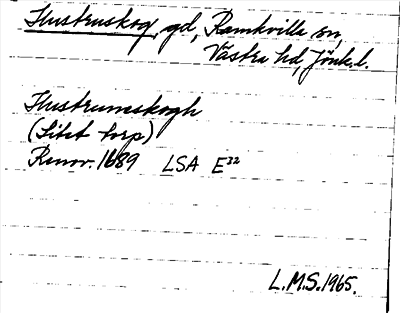 Hustruskog, gd, Ramkvilla sn,
Västra hd, Jönk. l.
Hustrumskogh
(Litet torp)
Renov. 1689 LSA E³²
L.M.S. 1965.